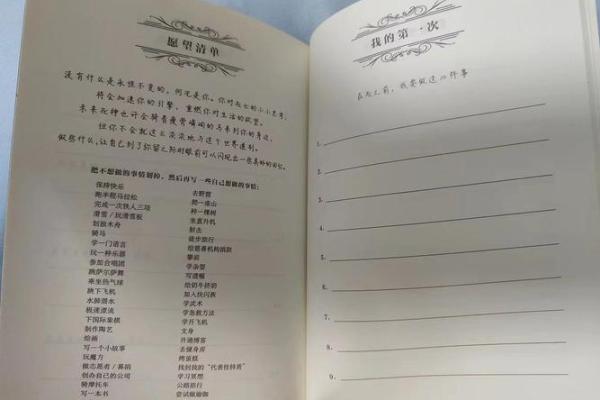 愿望清单
没有什么是永恒不变的，何况是你。你对死亡的小小思考，
将会加速你的引擎，重燃你对生活的欲望。
未来死神也许会骑着疲惫嘶哑的马来到你的身边，
但你不会就这么茫茫地与这个世界道别。
做些什么，让自己到了弥留之际眼前可以闪现出一些美好的回忆。
把不想做的事情划掉，然后再写一些自己想做的事情：
保持快乐
跑半程马拉松
完成一次铁人三项
滑雪/玩滑雪板
划独木舟
骑马
学一门语言
玩一种乐器
参加合唱团
跳萨尔萨舞
乘坐热气球
跳下飞机
水肺潜水
极速漂流
下国际象棋
制作陶艺
绘画
写一个小故事
玩魔方
做志愿者/募捐
创办自己的公司
骑摩托车
写一本书
去野营
爬一座山
种一棵树
坐直升机
射击
徒步旅行
给慈善机构捐款
攀岩
学杂耍
写遗嘱
给奶牛挤奶
加入快闪族
学武术
学急救方法
学开飞机
文身
开通博客
去健身房
烤蛋糕
找到我的“代表性特质”
学习冥想
公路旅行
尝试做瑜伽
我的第一次
在死之前，我要做这九件事
1.
2.
3.
4.
5.
6.
7.
8.
9.